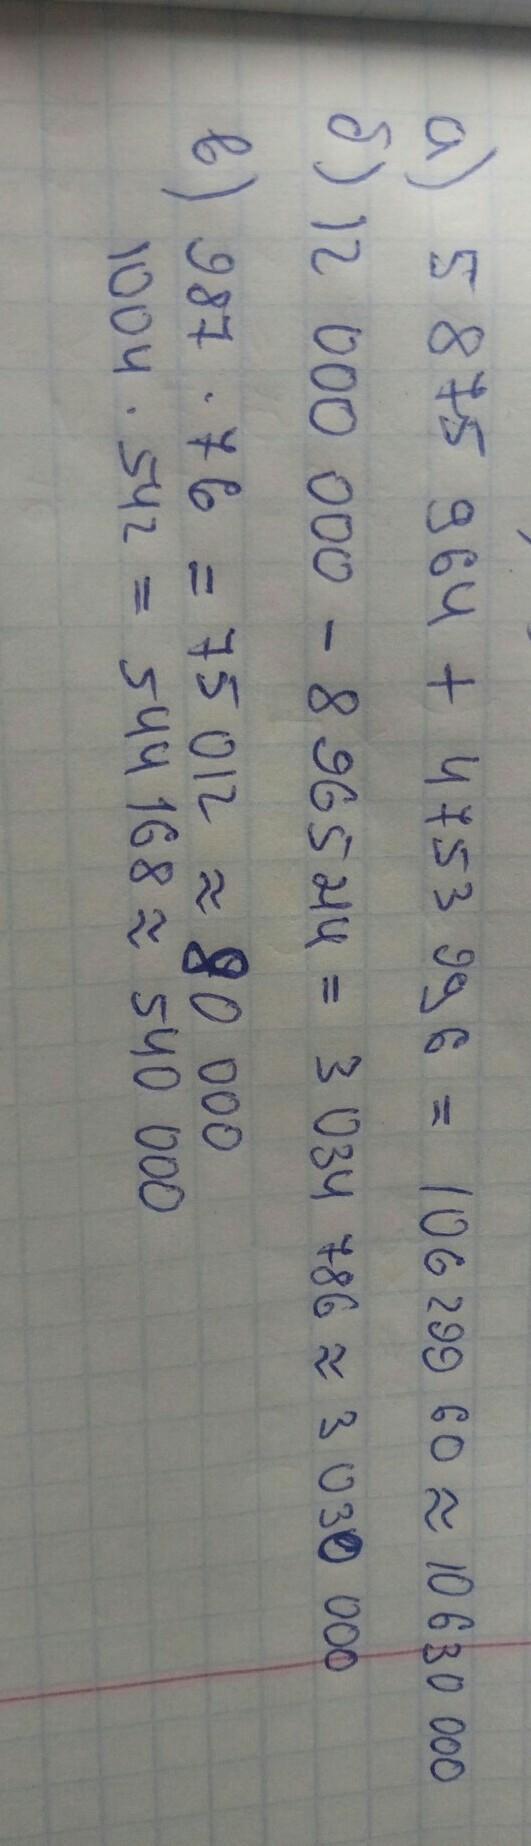 а) 5 875 964 + 4753 996 = 106 299 60 ≈ 10 630 000
б) 12 000 000 - 8 965 214 = 3 034 786 ≈ 3 030 000
в) 987 · 76 = 75 012 ≈ 80 000
1004 · 542 = 544 168 ≈ 540 000